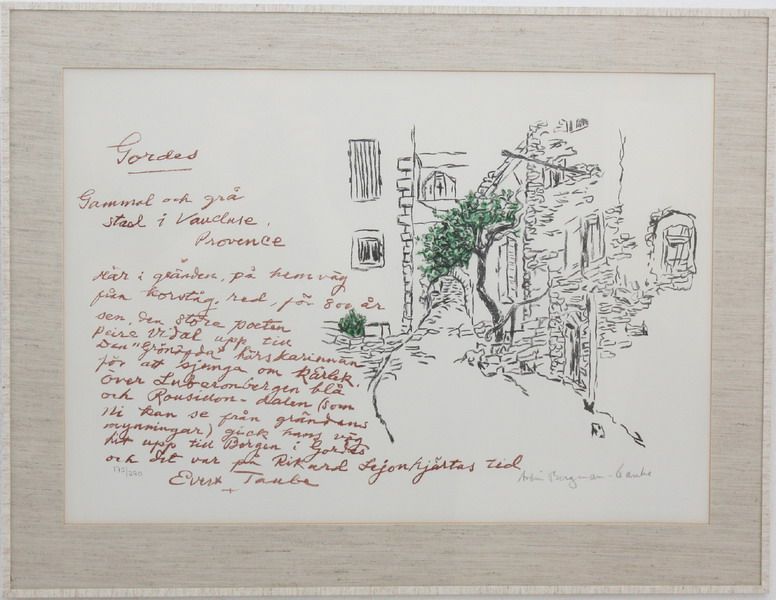 Gordes
Gammal och grå
stad i Vaucluse,
Provence
Här i gränden, på hemväg
från korståg, red, för 800 år
sen, den store poeten
Peire Vidal upp till
Den "Grönögda" härskarinnan
för att sjunga om Kärlek.
Över Luberonbergen blå
och Rousillon-dalen (som
Ni kan se från grändens
mynningar) gick hans väg
hit upp till Borgen i Gordes
och det var på Rikard Lejonhjärtas tid
Evert Taube
170/250